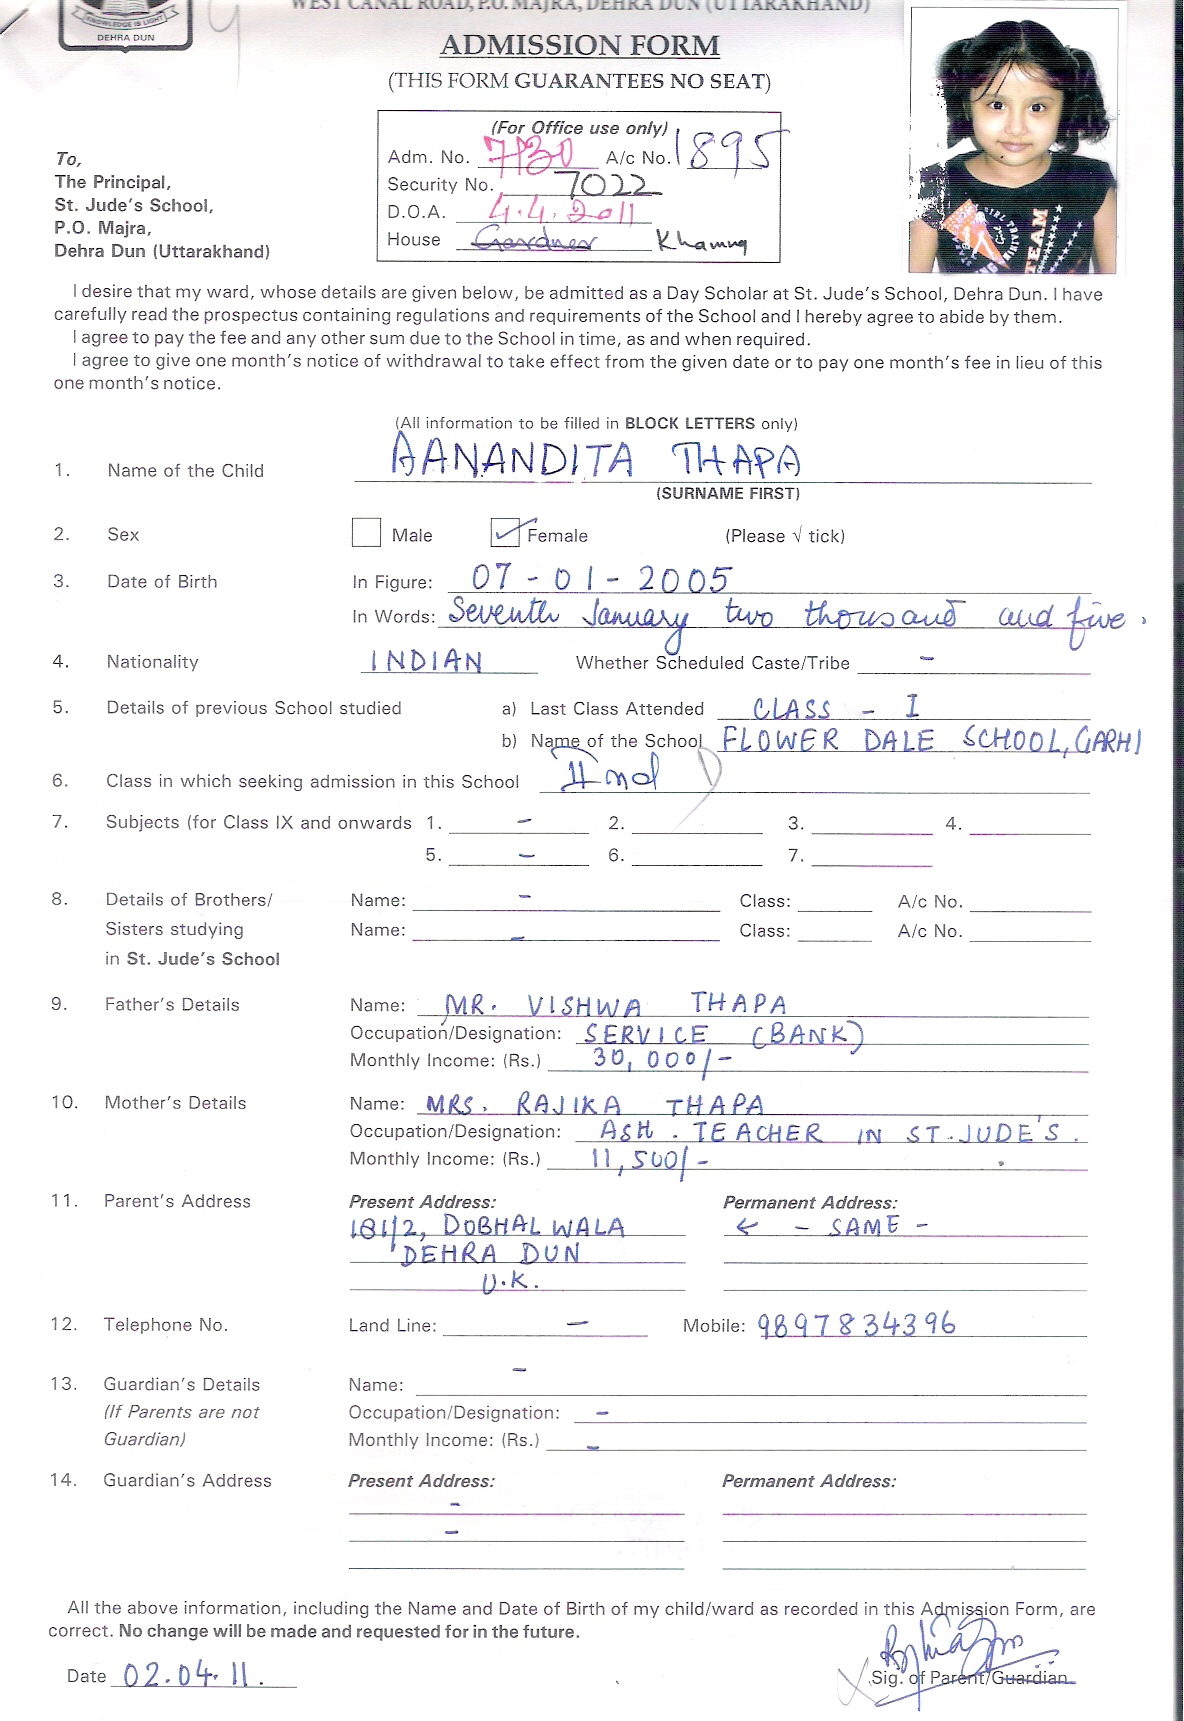 WEST CANAL ROAD, P.O. MAJRA, DEHRA DUN (UTTARAKHAND)
KNOWLEDGE IS LIGHT
DEHRA DUN
ADMISSION FORM
(THIS FORM GUARANTEES NO SEAT)
(For Office use only)
Adm. No. 7130 A/c No. 1895
Security No. 7022
D.O.A. 4.4.2011
House Gardner Khamng
To,
The Principal,
St. Jude's School,
P.O. Majra,
Dehra Dun (Uttarakhand)
TEAM
I desire that my ward, whose details are given below, be admitted as a Day Scholar at St. Jude's School, Dehra Dun. I have
carefully read the prospectus containing regulations and requirements of the School and I hereby agree to abide by them.
I agree to pay the fee and any other sum due to the School in time, as and when required.
I agree to give one month's notice of withdrawal to take effect from the given date or to pay one month's fee in lieu of this
one month's notice.
(All information to be filled in BLOCK LETTERS only)
1. Name of the Child AANANDITA THAPA
(SURNAME FIRST)
2. Sex Male ✓ Female (Please √ tick)
3. Date of Birth In Figure: 07-01-2005
In Words: Seventh January two thousand and five.
4. Nationality INDIAN Whether Scheduled Caste/Tribe -
5. Details of previous School studied a) Last Class Attended CLASS - I
b) Name of the School FLOWER DALE SCHOOL, GARHI
6. Class in which seeking admission in this School IInd
7. Subjects (for Class IX and onwards 1. - 2. 3. 4.
5. - 6. 7.
8. Details of Brothers/ Name: - Class: A/c No.
Sisters studying Name: - Class: A/c No.
in St. Jude's School
9. Father's Details Name: MR. VISHWA THAPA
Occupation/Designation: SERVICE (BANK)
Monthly Income: (Rs.) 30,000/-
10. Mother's Details Name: MRS. RAJIKA THAPA
Occupation/Designation: ASH. TEACHER IN ST. JUDE'S.
Monthly Income: (Rs.) 11,500/-
11. Parent's Address Present Address: Permanent Address:
181/2, DOBHAL WALA ← - SAME -
DEHRA DUN
U.K.
12. Telephone No. Land Line: - Mobile: 9897834396
13. Guardian's Details Name: -
(If Parents are not Occupation/Designation: -
Guardian) Monthly Income: (Rs.) -
14. Guardian's Address Present Address: Permanent Address:
-
-
All the above information, including the Name and Date of Birth of my child/ward as recorded in this Admission Form, are
correct. No change will be made and requested for in the future.
Date 02.04.11. Sig. of Parent/Guardian